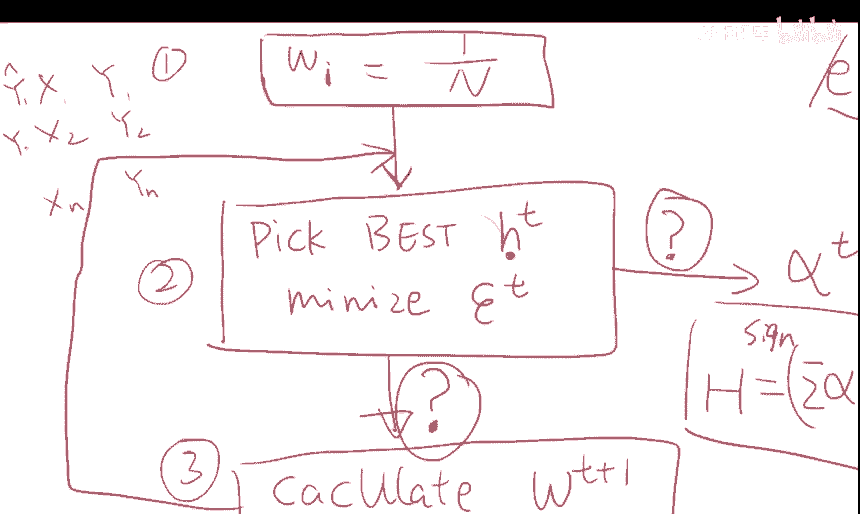 ① W_i = 1/N
Ŷ, X, Y,
Y, X₂ Y₂
X_n Y_n
/e
② PICK BEST h^t
minize ε^t
?
α^t
sign
H=(Σα
?
③ CACULate W^{t+1}